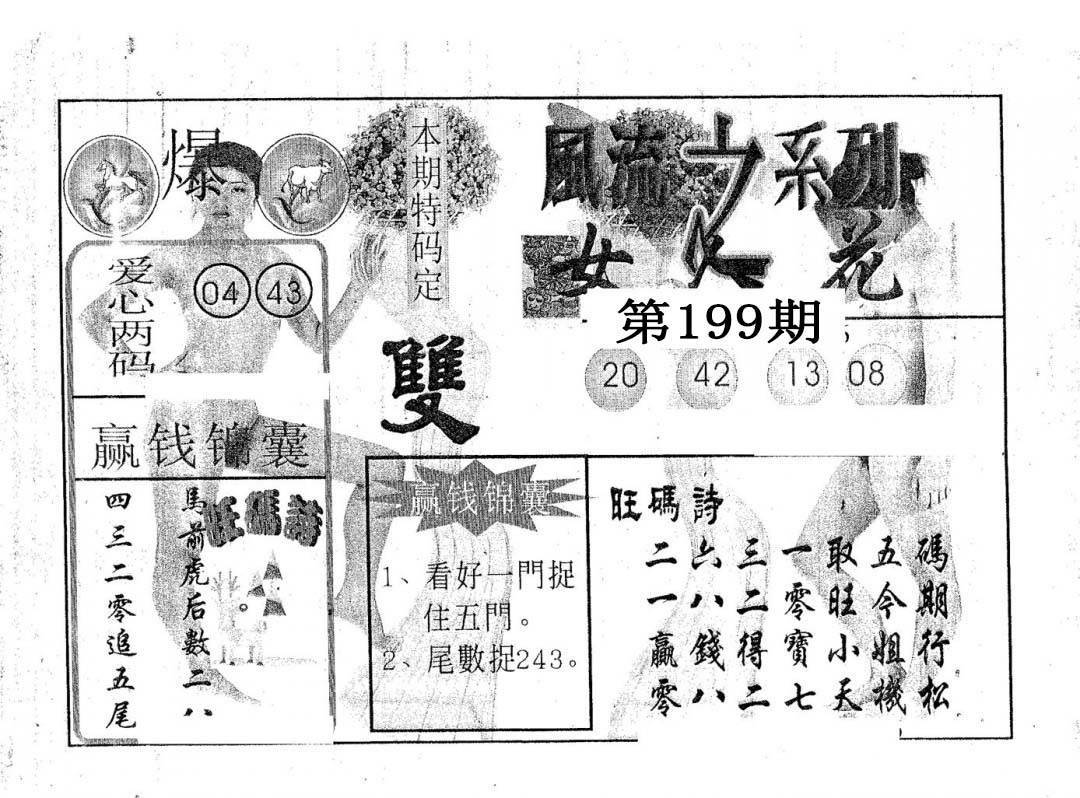 爆
爱心两码
04 43
赢钱锦囊
旺碼詩
馬前虎后數二八。
四三二零追五尾
本期特码定
雙
风流之系列
女人花
第199期
20 42 13 08
赢钱锦囊
1、看好一門捉
住五門。
2、尾數捉243。
旺碼詩
二六三一取五碼
一八二零旺今期
贏錢得寶小姐行
零八二七天機松